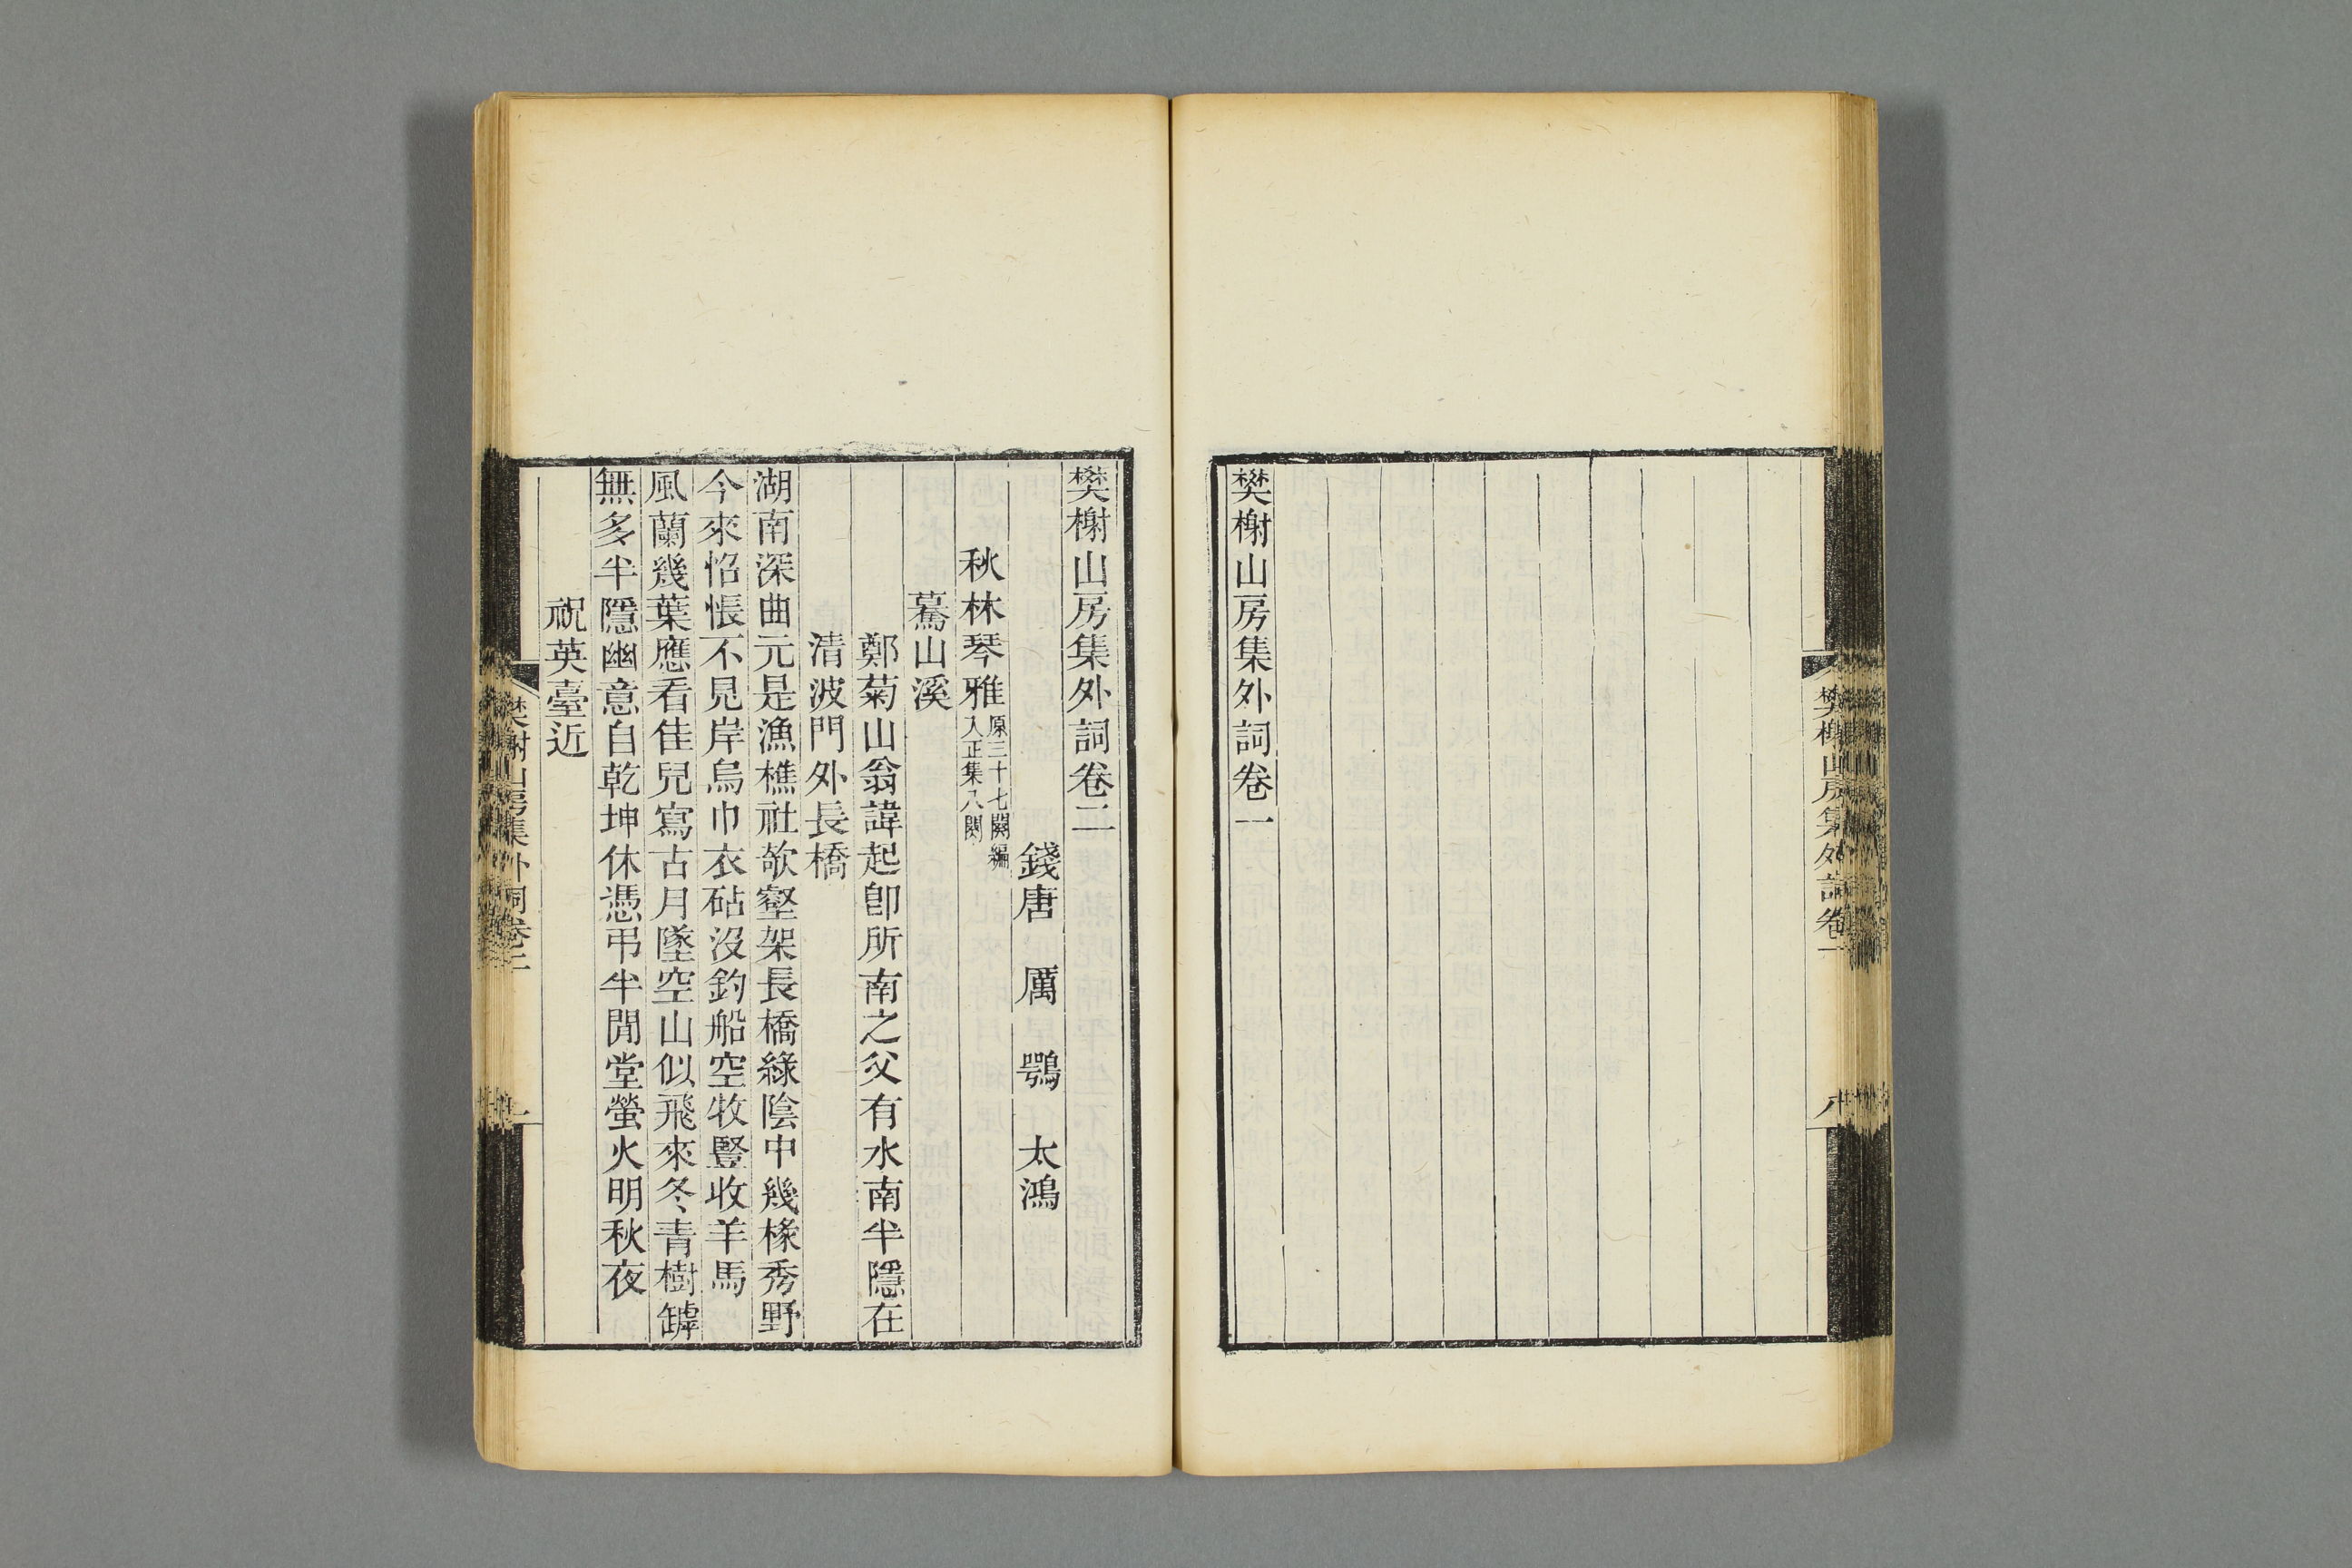 樊榭山房集外詞卷一
八
樊榭山房集外詞卷一
樊榭山房集外詞卷二
錢唐 厲 鶚 太鴻
秋林琴雅原三十七闋編
入正集八闋
驀山溪
鄭菊山翁諱起卽所南之父有水南半隱在
清波門外長橋
湖南深曲元是漁樵社欹壑架長橋綠陰中幾椽秀野
今來怊悵不見岸烏巾衣砧沒釣船空牧豎收羊馬
風蘭幾葉應看佳兒寫古月墜空山似飛來冬青樹罅
無多半隱幽意自乾坤休憑弔半閒堂螢火明秋夜
祝英臺近
樊榭山房集外詞卷二
一